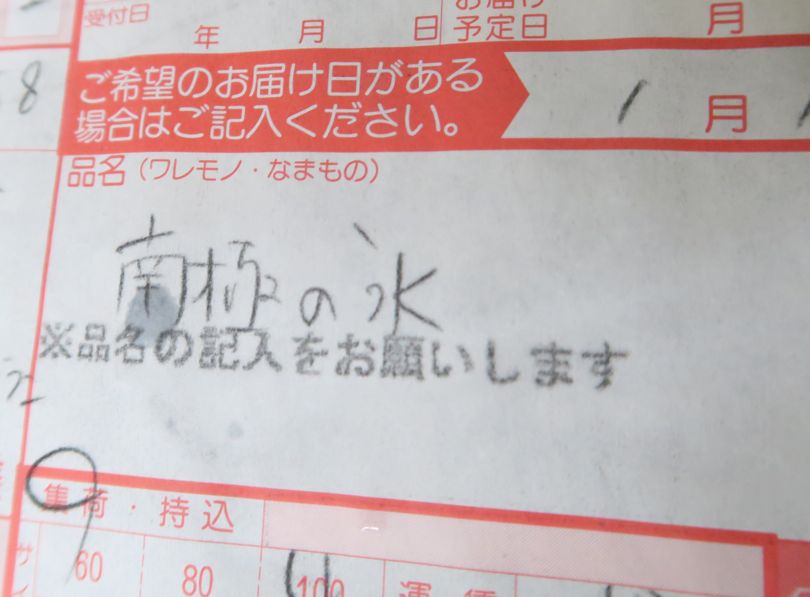 受付日 年 月 日 お届け予定日 月
8
ご希望のお届け日がある
場合はご記入ください。
1 月
品名(ワレモノ・なまもの)
南極の氷
※品名の記入をお願いします
集荷・持込
サイ 60 80 100 運賃